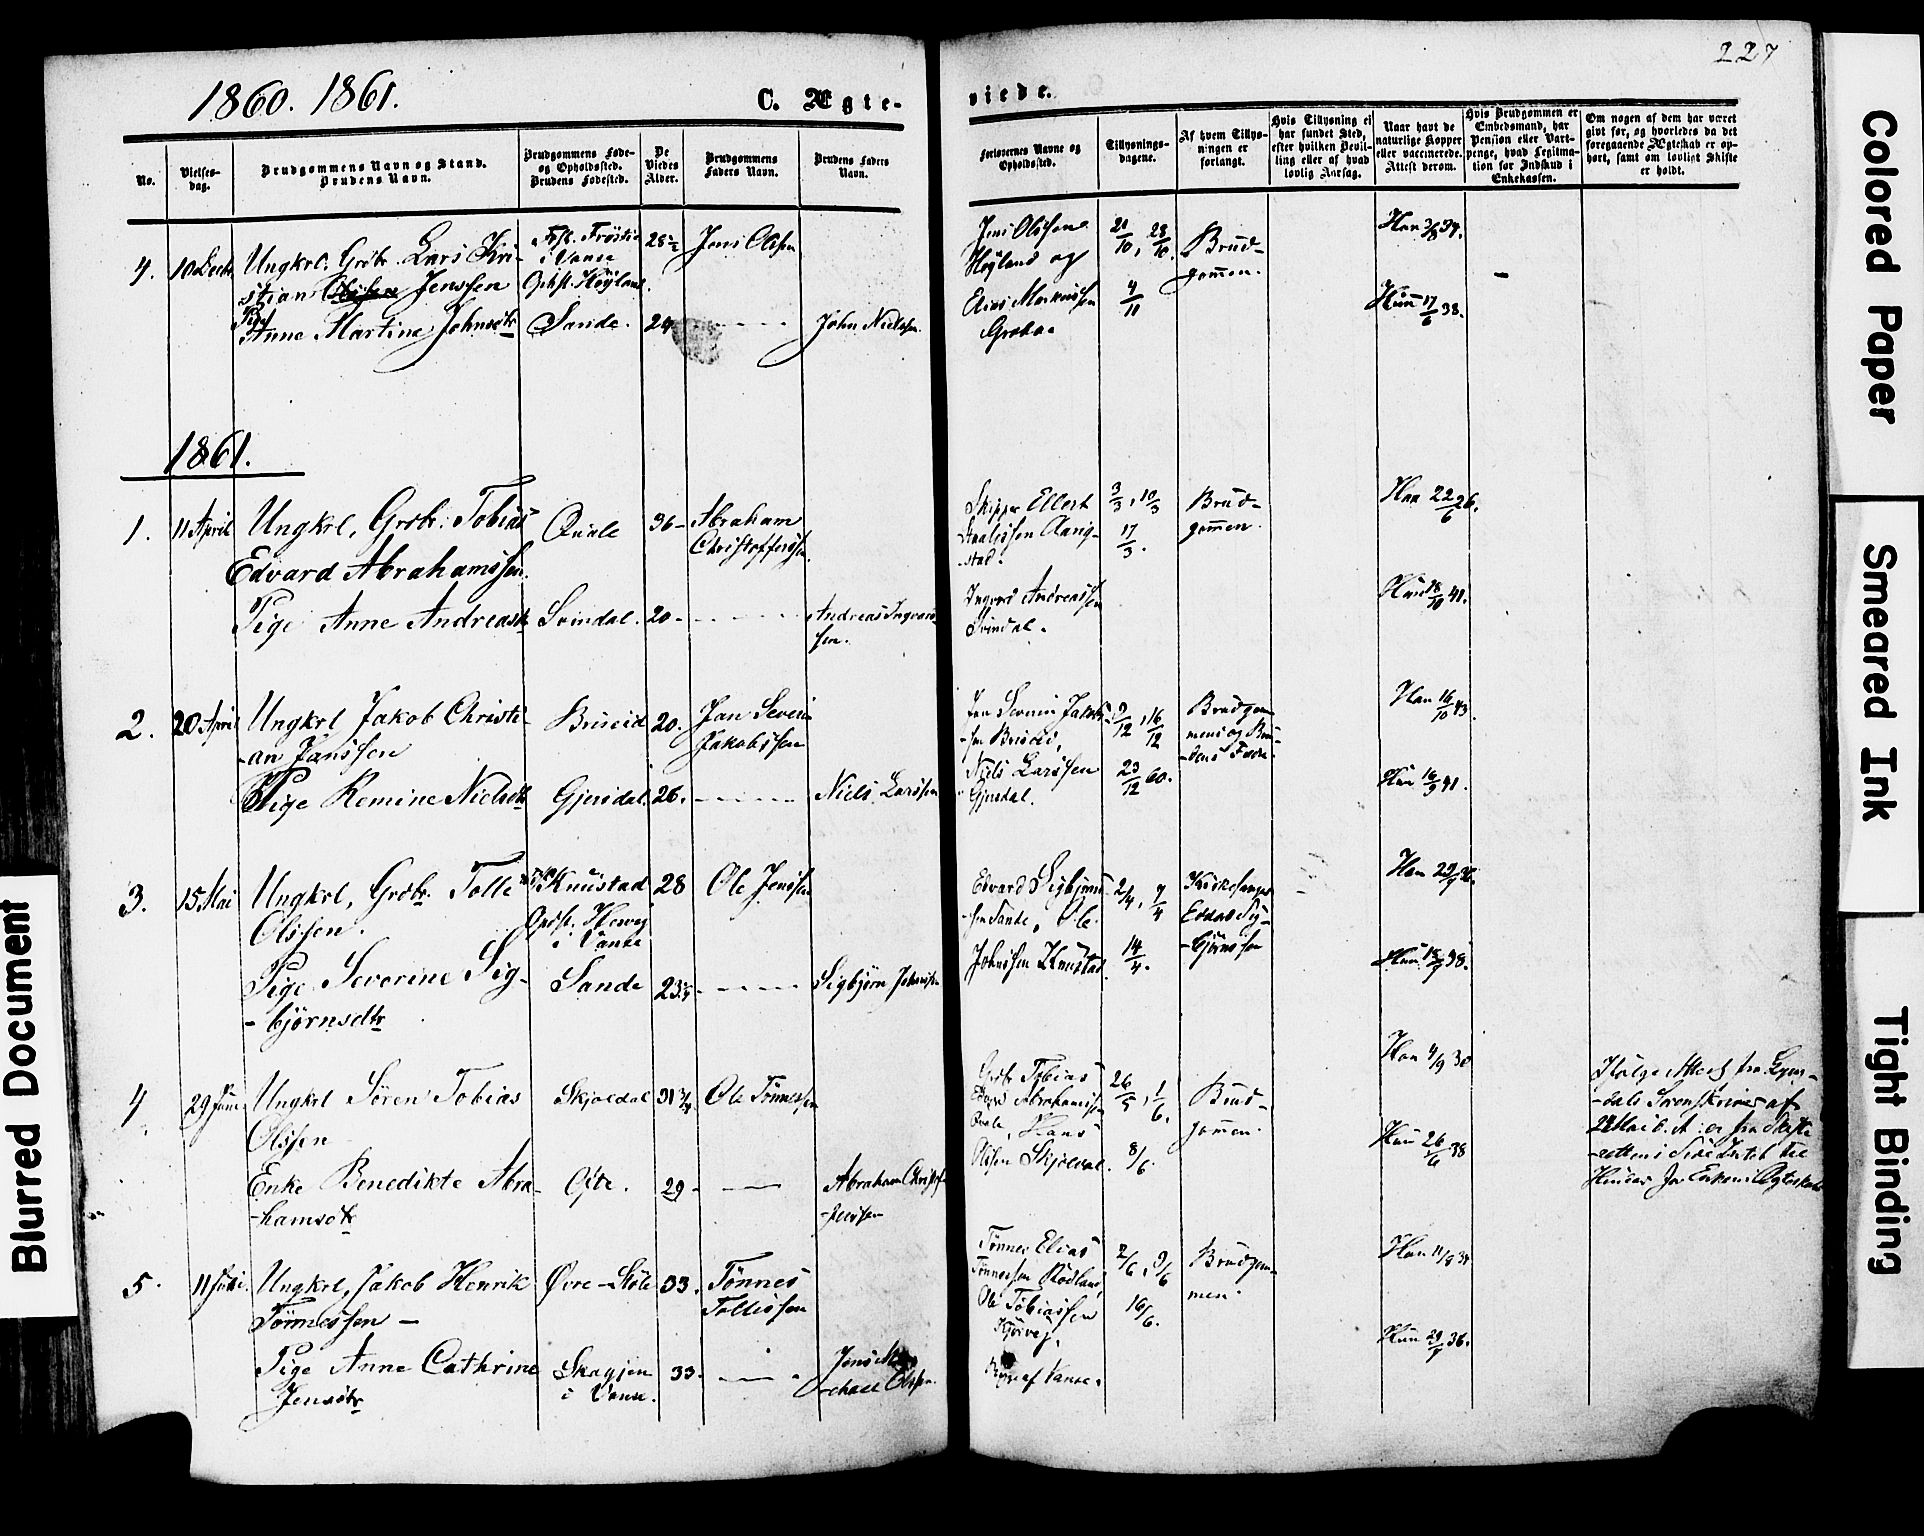 227
1860. 1861.
C. Ægte-
viede.
No.
Vielses-
dag.
Brudgommens Navn og Stand.
Brudens Navn.
Brudgommens Føde-
og Opholdssted.
Brudens Fødested.
De
Viedes
Alder.
Brudgommens
Faders Navn.
Brudens Faders
Navn.
Forlovernes Navne og
Opholdssted.
Tillysnings-
dagene.
Af hvem Tillys-
ningen er
forlangt.
Hvis Tillysning ei
har fundet Sted,
efter hvilken Bevil-
ling eller af hvad
lovlig Aarsag.
Naar havt de
naturlige Kopper
eller vaccinerede.
Attest derom.
Hvis Brudgommen er
Embedsmand, har
Pension eller Vart-
penge, hvad Legitima-
tion for Indskud i
Enkekassen.
Om nogen af dem har været
givt før, og hvorledes da det
foregaaende Ægteskab er op-
hørt, samt om lovligt Skifte
er holdt.
4.
10 Decb.
Ungkrl. Grdbr. Lars Kri-
stian Jenssen
Pige
Anne Martine Johnsdtr
i Vanse
Opst. Høyland.
Sande.
24
Jens Olssen
John Nielssen.
Jens Olssen
Høyland og
Elias Markussen
21/10, 28/10.
4/11
Brud-
gommen.
Han
Hun 17/6 38.
1861.
1.
11 April
Ungkrl, Grdbr. Tobias
Edvard Abrahamssen.
Pige Anne Andreasdtr
Qvale
Svindal.
36
20
Abraham
Christofferssen.
Andreas Ingvald-
sen.
Skipper Ellert
stad.
Andreassen
Svindal.
3/3, 10/3
17/3.
Brud-
gommen.
Han 22/6 26.
Hun 18/10 41.
2.
20 April
Ungkrl Jakob Christi-
-an Janssen
Pige Remine Nielsdtr
Briseid
Gjersdal.
20.
26.
Jan Severin
Jakobssen
Niels Larssen
Jan Severin Jakob-
-sen Briseid,
Niels Larssen
Gjersdal.
9/12, 16/12
23/12 60.
Brudgom-
mens og Bru-
-dens Fædre.
Han 16/10 43.
Hun 16/9 41.
3.
15 Mai
Ungkrl, Grdbr. Tolle
Olssen.
Pige Severine Sig-
-bjørnsdtr
Knustad
i Vanse
Sande
28
Ole Jenssen
Sigbjørn Johnssen
Edvard Sigbjørns-
-sen Sande, Ole
Johnssen Knustad.
2/4, 7/4
14/4.
Kirkesanger
Edvard Sig-
-bjørnssen
Han
Hun 38.
4.
29 Juni
Ungkrl Søren Tobias
Olssen
Enke Benedikte Abra-
-hamsdtr
Skjoldal
Øite.
31 3/4
29
Ole Tønnessen
Abraham Christof-
-ferssen
Grdbr Tobias
Edvard Abrahamssen
Qvale, Hans
Olssen Skjoldal.
26/5, 1/6.
8/6.
Brud-
gommen.
Han 4/9 30
Hun 26/6 38
Ifølge Attest fra Lyng-
-dals Sorenskriver af
5.
11 Juli.
Ungkrl, Jakob Henrik
Tønnessen –
Pige Anne Cathrine
Jensdtr
Øvre-Støle
Skagjen
i Vanse.
33.
33.
Tønnes
Tollissen
-chael Olssen.
Tønnes Elias
Tønnessen Rødland,
Ole Tobiassen
af Vanse.
2/6, 9/6
16/6.
Brudgom-
men.
Han
Hun 36.
Colored Paper
Smeared Ink
Tight Binding
Blurred Document